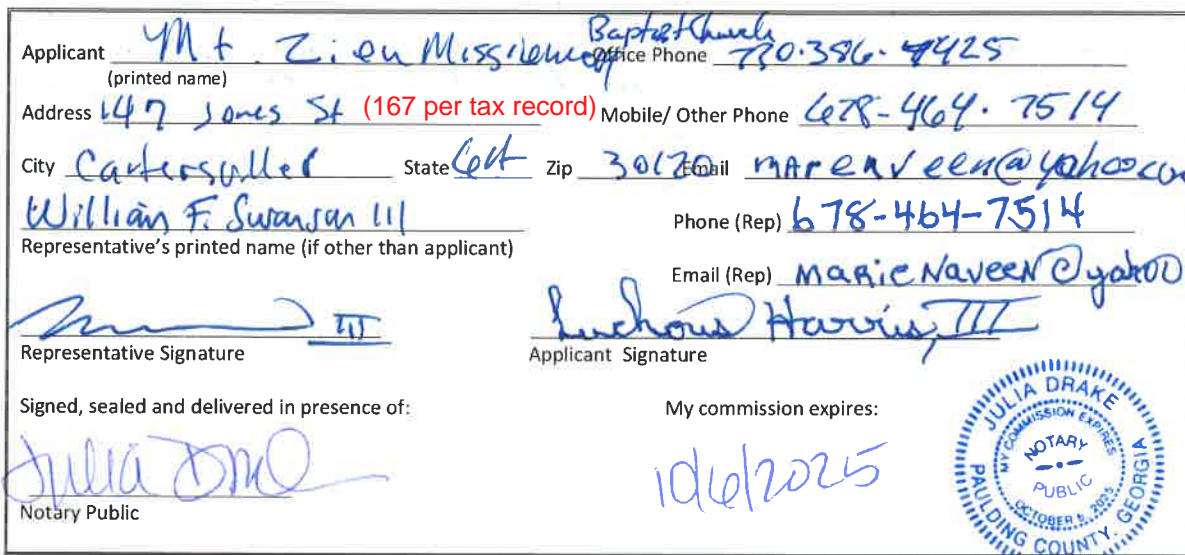 Applicant Mt. Zion Missionary Baptist Church Office Phone 770.386.4425
(printed name)
Address 147 Jones St (167 per tax record) Mobile/ Other Phone 678-464.7514
City Cartersville State GA Zip 30120 Email
William F. Swanson III Phone (Rep) 678-464-7514
Representative's printed name (if other than applicant)
Email (Rep) marieNaveen@yahoo
III Luchous Harris, III
Representative Signature Applicant Signature
Signed, sealed and delivered in presence of: My commission expires:
Julia Drake 10/6/2025
Notary Public
JULIA DRAKE
MY COMMISSION EXPIRES
NOTARY
PUBLIC
OCTOBER 2025
PAULDING COUNTY, GEORGIA